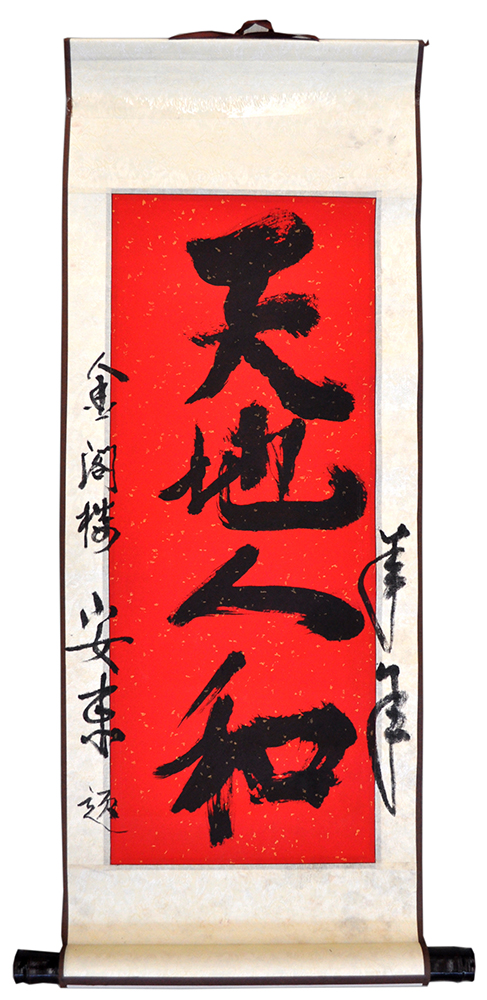 羊年
天地人和
金阁楼 安东 题